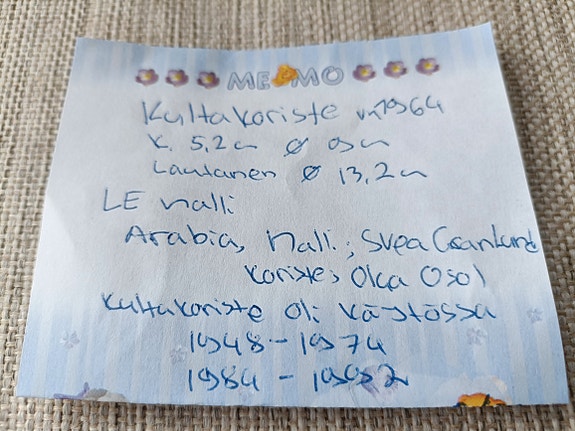 MEMO
Kultakoriste v.1964
K. 5,2cm Ø 9cm
Lautanen Ø 13,2cm
LE malli
Arabia, malli; Svea Granlund
koriste; Olga Osol
Kultakoriste oli käytössä
1948-1974
1984-1992